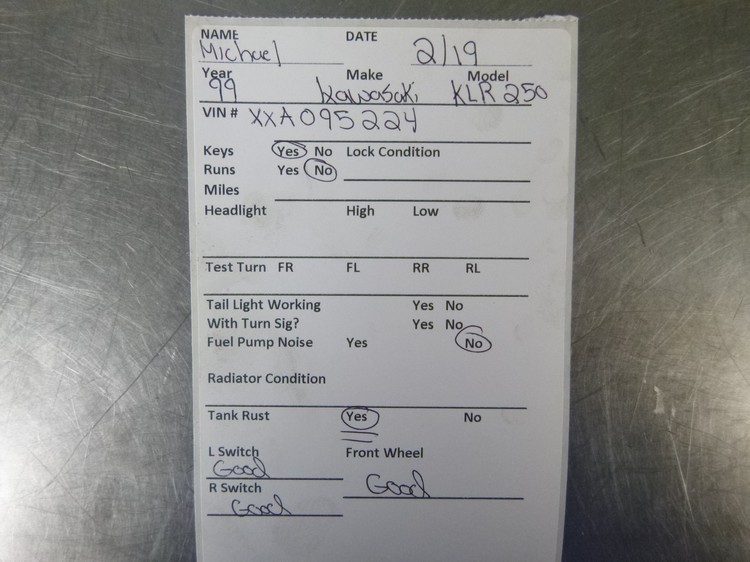 NAME DATE
Michael 2/19
Year Make Model
99 Kawasaki KLR 250
VIN # XXA095224
Keys Yes No Lock Condition
Runs Yes No
Miles
Headlight High Low
Test Turn FR FL RR RL
Tail Light Working Yes No
With Turn Sig? Yes No
Fuel Pump Noise Yes No
Radiator Condition
Tank Rust Yes No
L Switch Front Wheel
Good Good
R Switch
Good